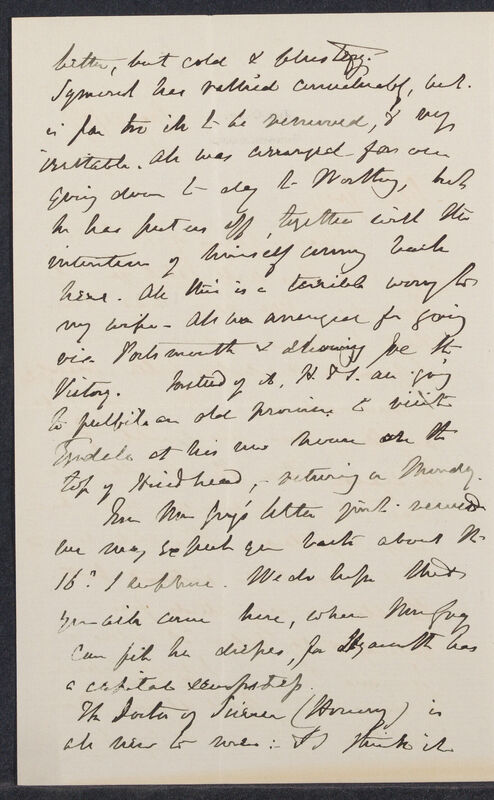 better, but cold & blustery.
Symond has rallied considerably, but
is far too ill to be removed, & very
irritable. All was arranged for our
going down to day to Worthing, but
he has put us off, together with the
intention of himself coming back
here. All this is a terrible worry to
my wife. All was arranged for going
via Portsmouth & showing Joe the
Victory. Instead of it, H & I are going
to fulfil an old promise to visit
Tyndall at his new house on the
top of Hindhead, returning on Monday.
From Mrs Gray's letter just received
we may expect you back about the
16th I suppose. We do hope that
you will come here, where Mrs Gray
can fit her dresses, for Hyacinth has
a capital sempstress.
The Doctor of Science (Honorary) is
all new to me: & I think it